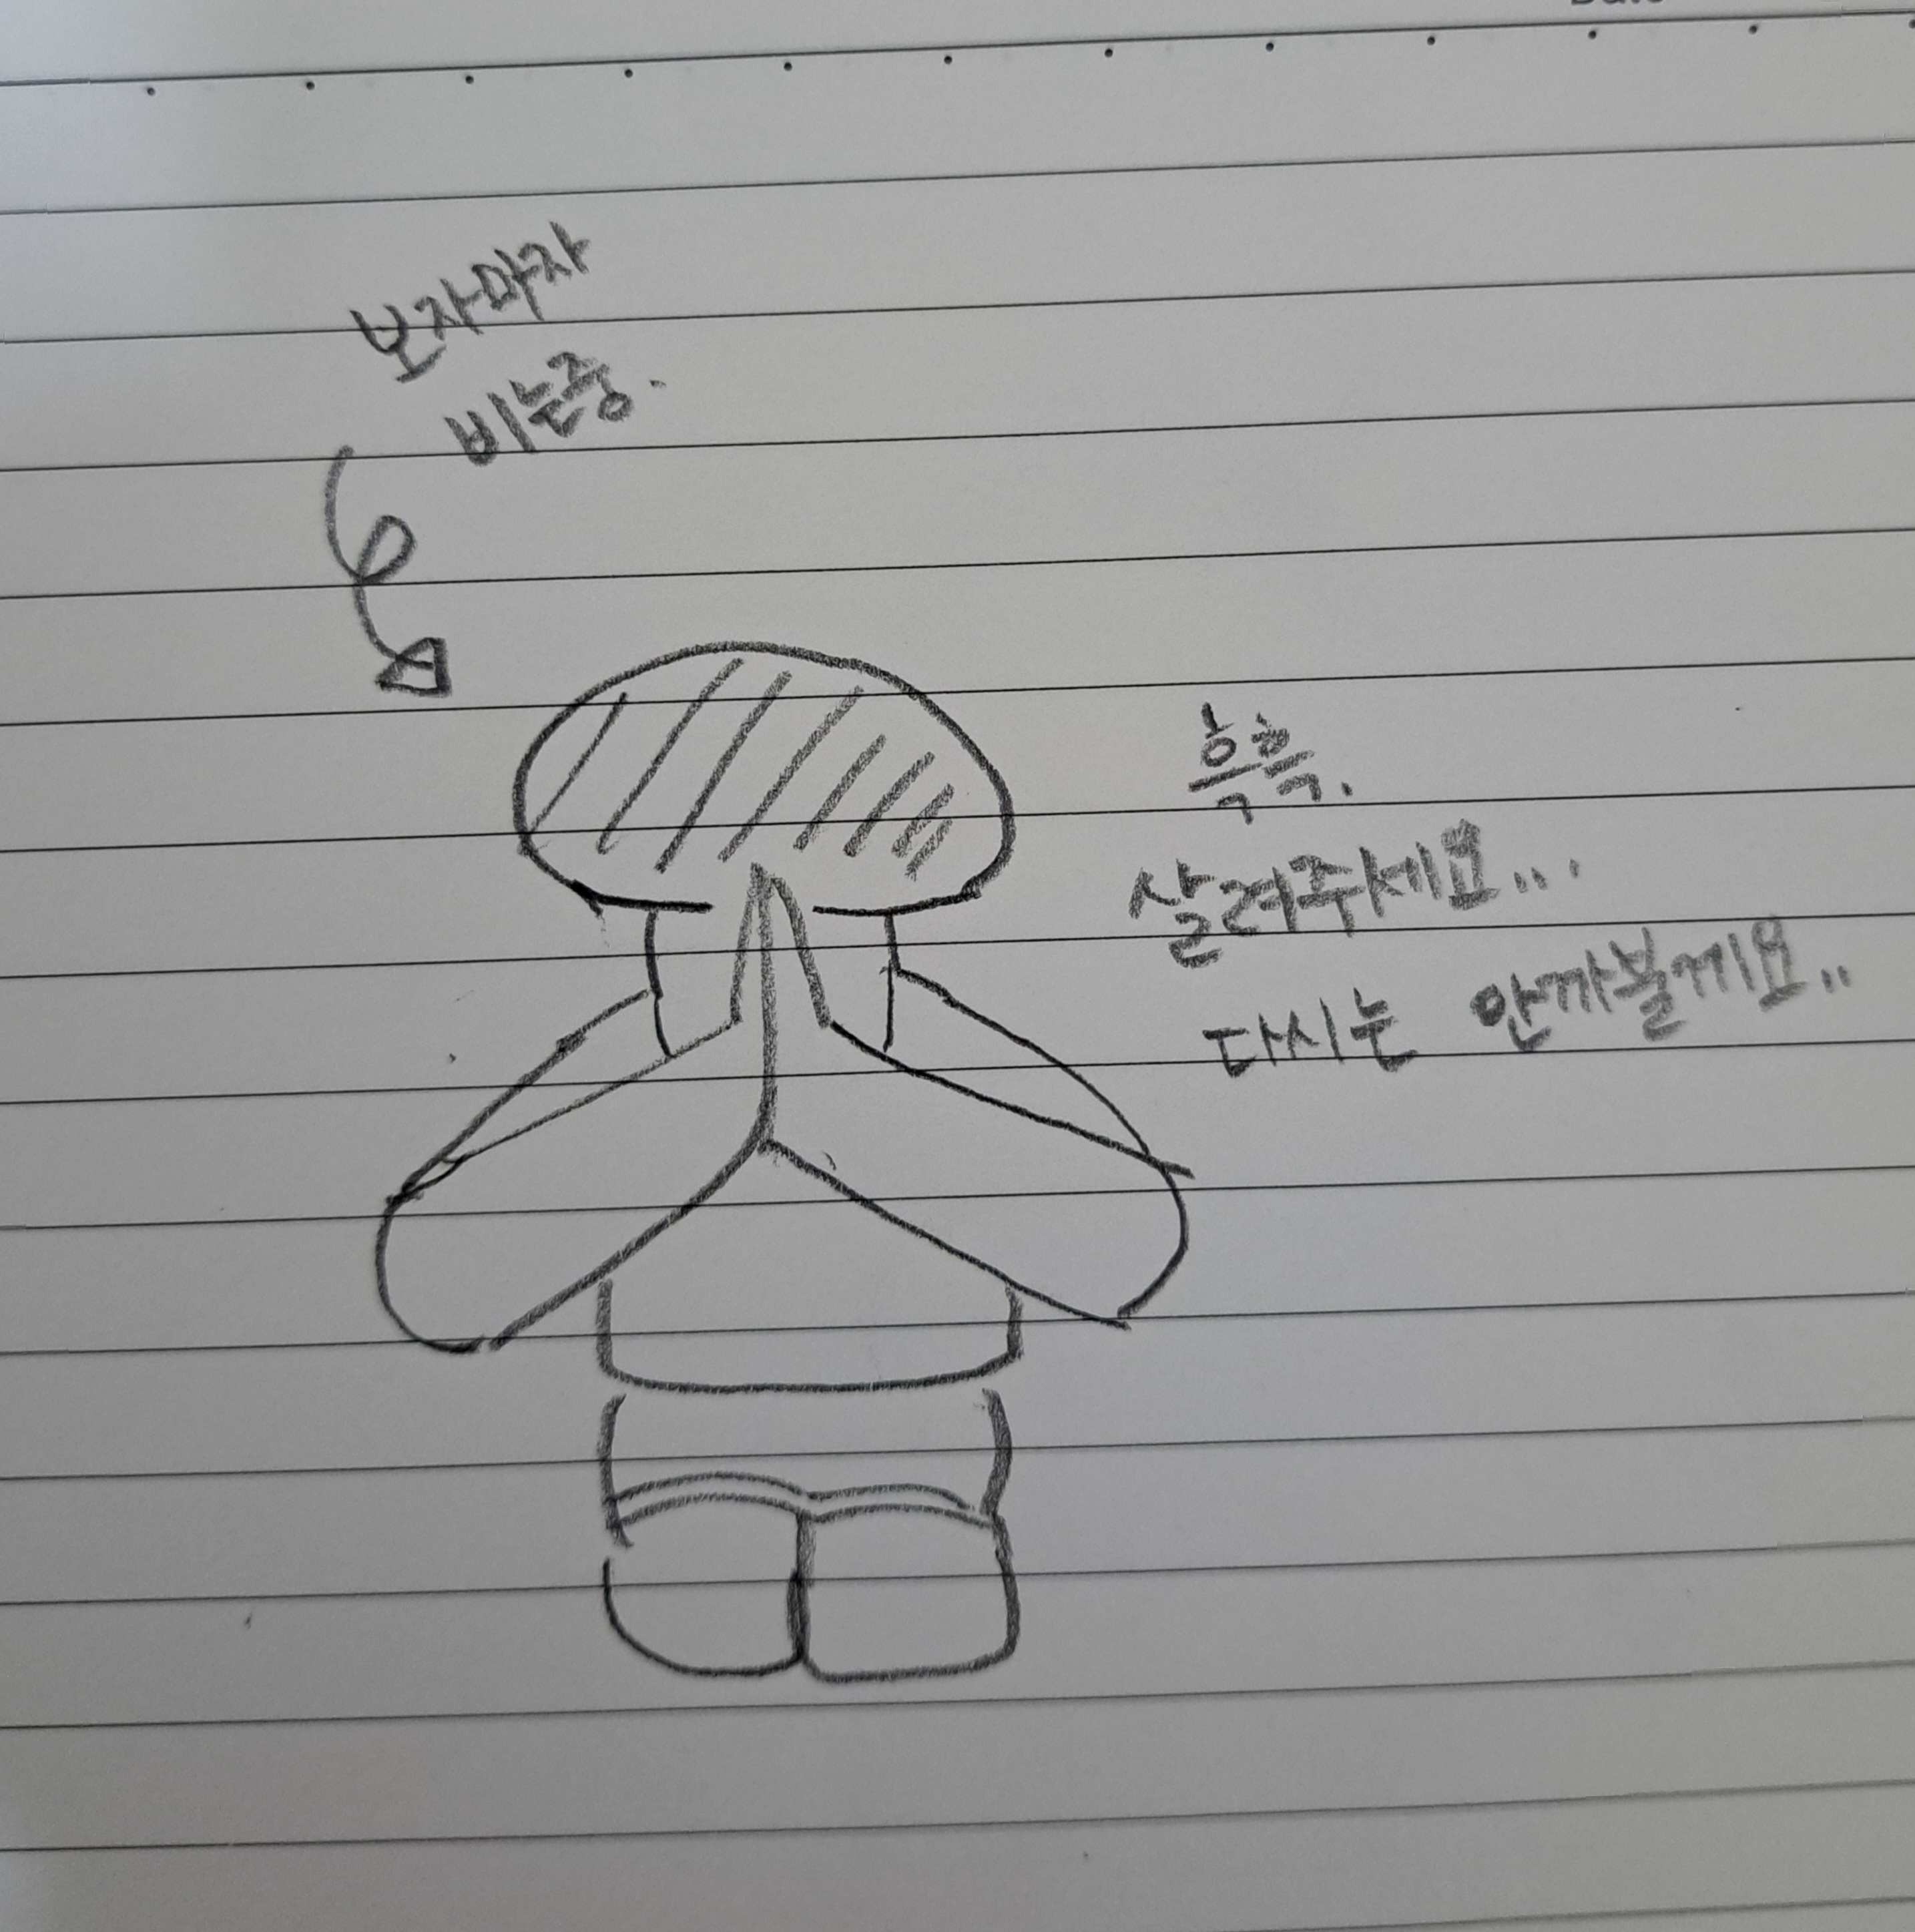 보자마자
비는중.
흑흑.
살려주세요...
다시는 안까불게요..